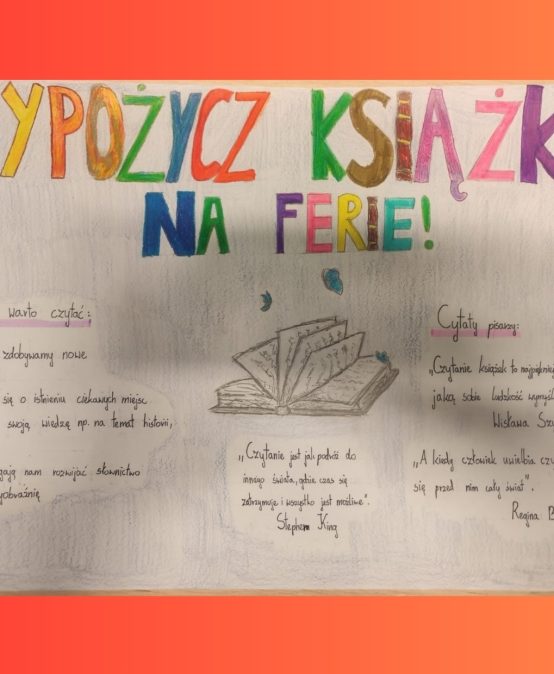 YPOŻYCZ KSIĄŻK
NA FERIE!
warto czytać:
zdobywamy nowe
się o istnieniu ciekawych miejsc
swoją wiedzę np. na temat historii,
gają nam rozwijać słownictwo
yobraźnię
„Czytanie jest jak podróż do
innego świata, gdzie czas się
zatrzymuje i wszystko jest możliwe".
Stephen King
Cytaty pisarzy:
„Czytanie książek to najpiękniej
jaką sobie ludzkość wymyśl
Wisława Sz
„A kiedy człowiek uwielbia czy
się przed nim cały świat".
Regina B